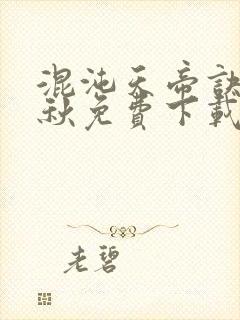 混沌天帝訣
秋免費下載
老碧